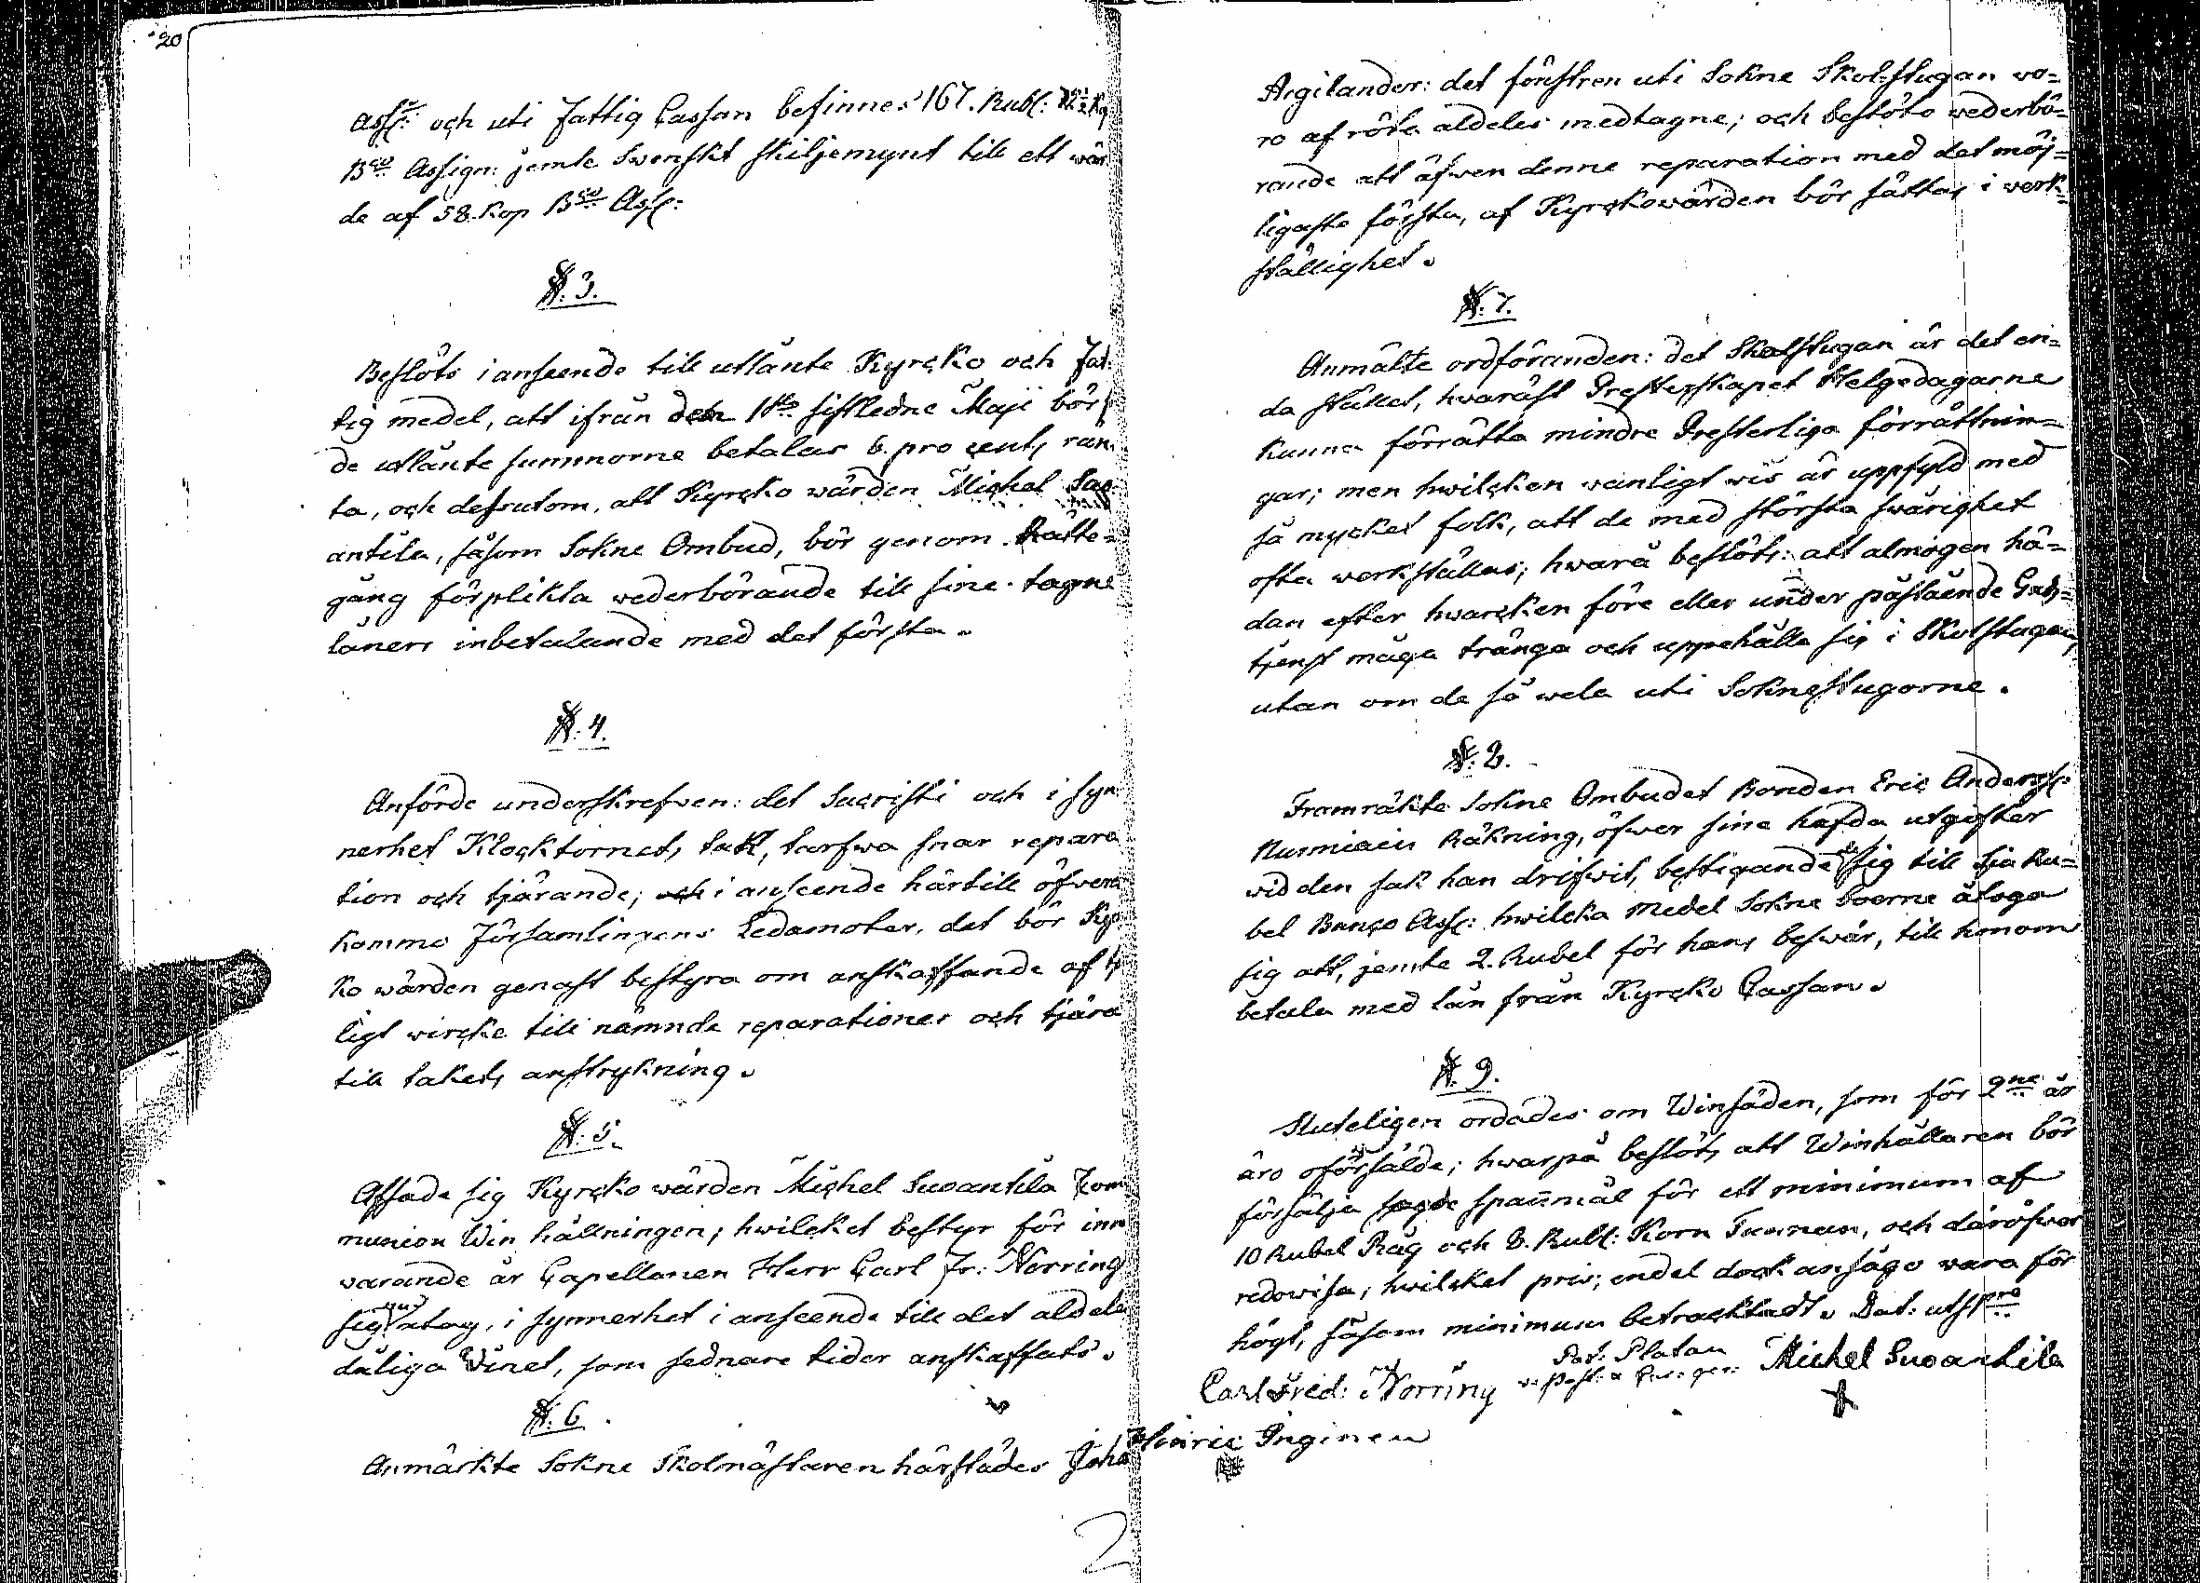 20
Ass: och uti Fattig Cassan befinnes 167. Rubl:
Bco Assign: jemte Swenskt skiljemynt till ett wär
de af 58. Kop Bco Ass:
§. 3.
Beslöts i anseende till utlånte Kyrcko och Fat
tig medel, att ifrån den 1sta sistledne Maji bör
de utlånte summorne betalas 6. pro cent, rän
ta, och desutom, att Kyrcko wärden Michel Suo
antila, såsom Sokne Ombud, bör genom Rätte-
gång förplikta wederbörande till sine tagne
låners inbetalande med det första.
§. 4.
Anförde underskrefwen: det Sacristi och i syn
nerhet Klocktornets tak, tarfwa snar repara
tion och tjärande; och i anseende härtill öfwerens
kommo Församlingens Ledamoter, det bör Kyr
ko wärden genast bestyra om anskaffande af
ligt wircke till nämnde reparationer och tjära
till takets anstrykning.
§. 5.
Afsade sig Kyrcko wärden Michel Suoantila Kom
munion Win hållningen; hwilcket bestyr för inn
warande år Capellanen Herr Carl Fr: Norring
sig åtog, i synnerhet i anseende till det aldeles
dåliga Winet, som sednare tider anskaffats.
§. 6.
Anmärkte Sokne Skolmästaren härstädes Joha
Argilander: det fönstren uti Sokne Skol-stugan wo-
ro af röta aldeles medtagne; och beslöto wederbö-
rande att äfwen denne reparation med det möj-
ligaste första, af Kyrckowärden bör sättas i werk-
ställighet.
§. 7.
Anmälte ordföranden: det Skolstugan är det en-
da stället, hwaräst Presterskapet Helgedagarne
kunna förrätta mindre Presterliga förrättnin-
gar; men hwilcken wanligt wis är uppfyld med
så mycket folk, att de med största swårighet
ofta werkställas; hwarå beslöts: att almogen hä-
dan efter hwarcken före eller under påstående Guds-
tjenst måga tränga och uppehålla sig i Skolstugan,
utan om de så wela uti Soknestugorne.
§. 8.
Framräkte Sokne Ombudet Bonden Eric Anderss:
Nurmiain Räkning, öfwer sine hafda utgifter
wid den sak han drifwit, bestigande sig till tjio Ru-
bel Banco Ass: hwilcka medel Sokne boerne åtoga
sig att, jemte 2. Rubel för hans beswär, till honom
betala med lån från Kyrcko Cassan.
§. 9.
Sluteligen ordades om Winsäden, som för 2ne år
äro oförsålde; hwarpå beslöts att Winhållaren bör
försälja sagde spannmål för ett minimum af
10 Rubel Råg och 8. Rubl: Korn Tunnan, och däröfwer
redowisa; hwilcket pris, endel dock ansågo wara för
högt, såsom minimum betracktadt. Dat: utsupra
Pet: Platan
Carl Fred: Norring Michel Suoantila
Hinric Inginen
2